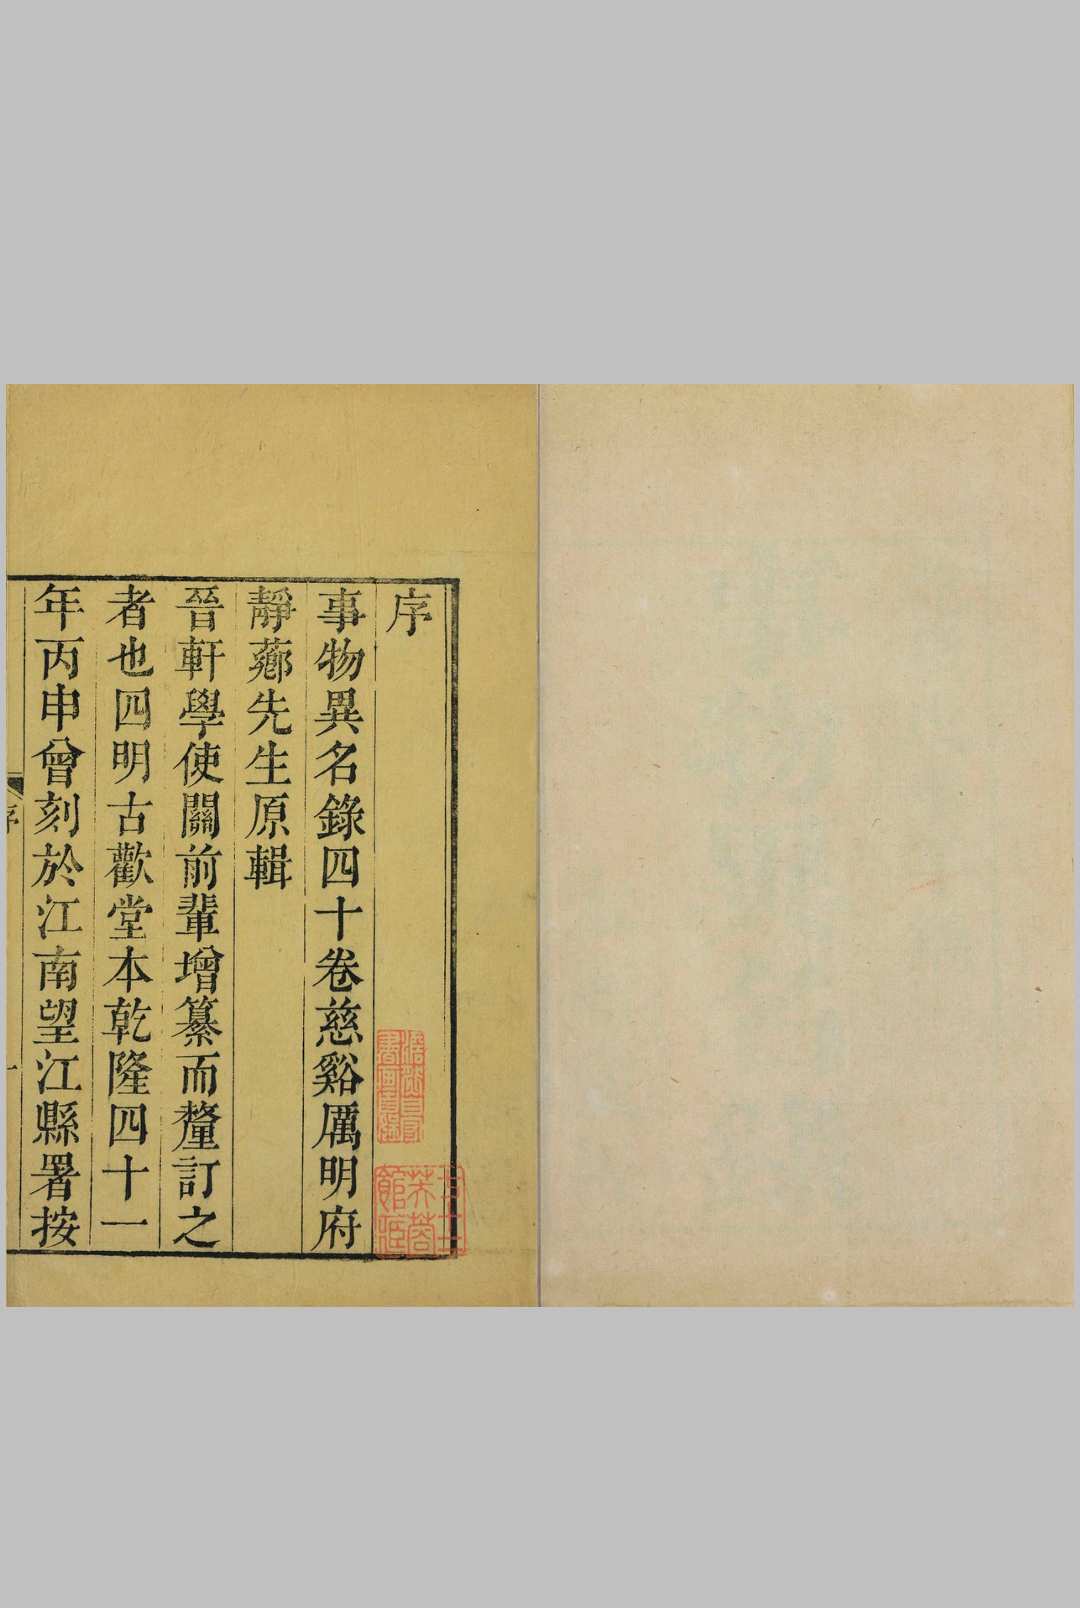 序
事物異名錄四十卷慈谿厲明府
靜薌先生原輯
晉軒學使關前輩增纂而釐訂之
者也四明古歡堂本乾隆四十一
年丙申曾刻於江南望江縣署按
序
一